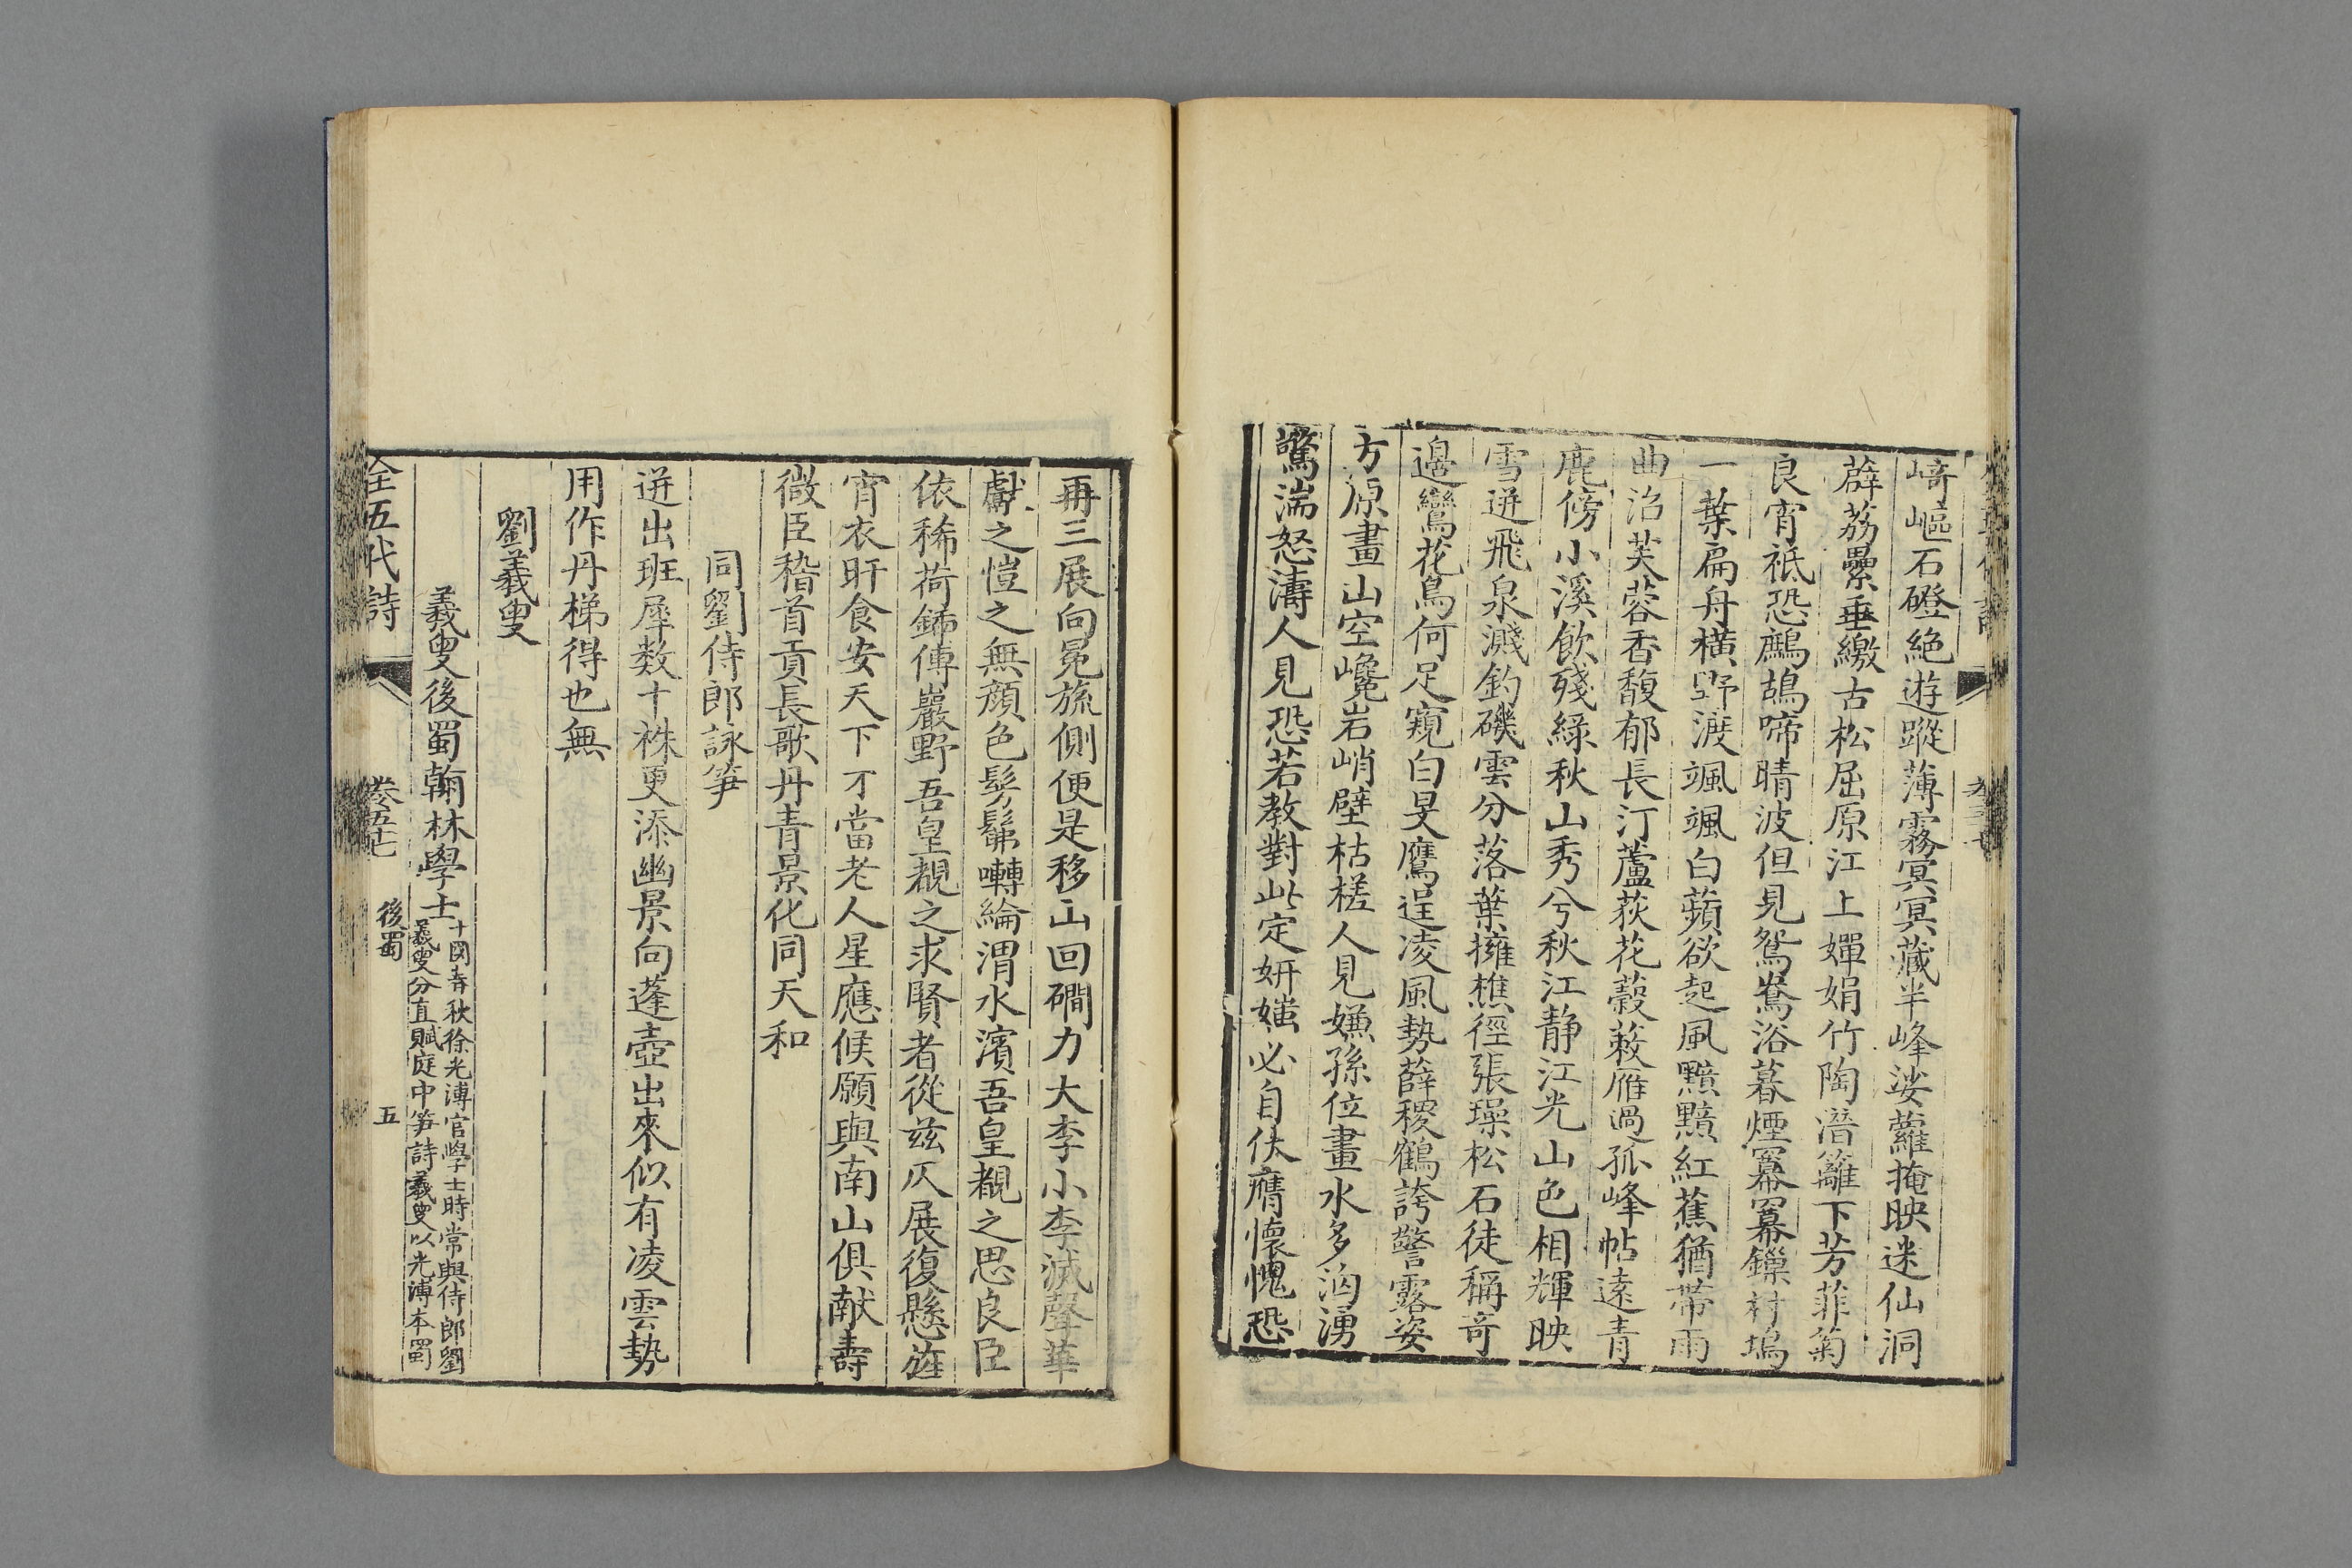 崎嶇石磴絕遊蹤薄霧冥冥藏半峰娑蘿掩映迷仙洞
薜荔纍垂繳古松屈原江上嬋娟竹陶潛籬下芳菲菊
良宵祗恐鷓鴣啼晴波但見鴛鴦浴暮煙冪冪鎖村塢
一葉扁舟橫野渡颯颯白蘋欲起風黯黯紅蕉猶帶雨
曲沼芙蓉香馥郁長汀蘆荻花蔌蔌雁過孤峰帖遠青
鹿傍小溪飲殘綠秋山秀兮秋江静江光山色相輝映
雪迸飛泉濺釣磯雲分落葉擁樵徑張璪松石徒稱奇
邊鸞花鳥何足窺白旻鷹逞凌風勢薛稷鶴誇警露姿
方原畫山空巉岩峭壁枯槎人見嫌孫位畫水多洶湧
驚湍怒濤人見恐若教對此定妍媸必自伏膺懷愧恐
再三展向冕旒側便是移山回磵力大李小李滅聲華
獻之愷之無顔色髣髴囀綸渭水濱吾皇覩之思良臣
依稀荷鍤傅巖野吾皇覩之求賢者從兹仄展復懸旌
宵衣旰食安天下才當老人星應候願與南山俱献壽
微臣稽首貢長歌丹青景化同天和
同劉侍郎詠笋
迸出班犀数十株更添幽景向蓬壺出來似有凌雲勢
用作丹梯得也無
劉義叟
義叟後蜀翰林學士
十國春秋徐光溥官學士時常與侍郎劉
義叟分直賦庭中笋詩義叟以光溥本蜀
全五代詩
卷五十七
後蜀
五